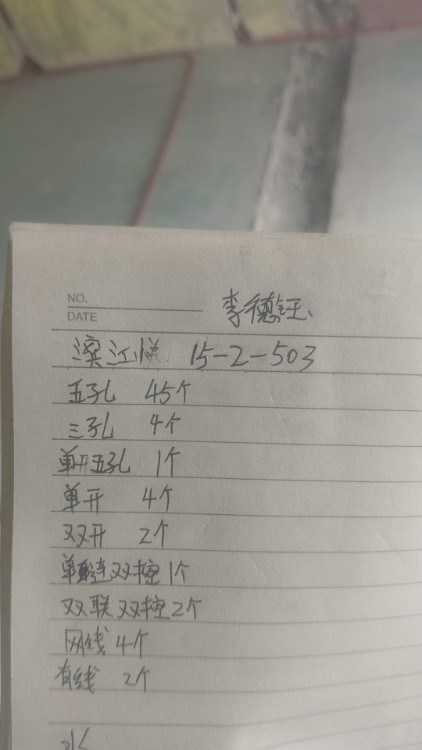 NO.
DATE
李德钰
滨江悦 15-2-503
五孔 45个
三孔 4个
单开五孔 1个
单开 4个
双开 2个
单联双控1个
双联双控2个
网线 4个
有线 2个